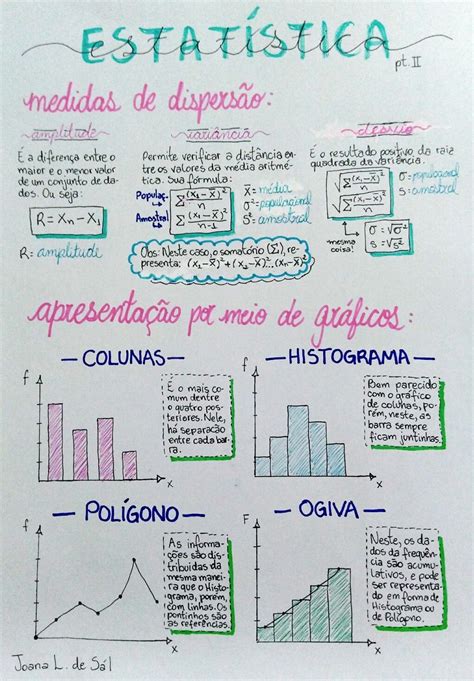 ESTATÍSTICA
estatística
pt. II
medidas de dispersão:
amplitude
É a diferença entre o
maior e o menor valor
de um conjunto de da-
dos. Ou seja:
R = Xn - X1
R = amplitude
variância
Permite verificar a distância en-
tre os valores da média aritmé-
tica. Sua fórmula:
Populaç.
Σ(x1-x̄)²
n
Amostral
Σ(x1-x̄)²
n-1
x̄ = média
σ² = populacional
s² = amostral
Obs: Neste caso, o somatório (Σ), re-
presenta: (x1-x̄)²+(x2-x̄)²...(xn-x̄)²
desvio
É o resultado positivo da raiz
quadrada da variância.
√Σ(x1-x̄)²
n
√Σ(x1-x̄)²
n
σ = populacional
s = amostral
mesma
coisa!
σ = √σ²
s = √s²
apresentação por meio de gráficos:
COLUNAS
f
x
É o mais co-
mum dentre
o quatro pos-
teriores. Nele,
há separação
entre cada bar-
ra.
HISTOGRAMA
f
x
Bem parecido
com o gráfico
de colunas, po-
rém, neste, as
barra sempre
ficam juntinhas.
POLÍGONO
f
x
As informa-
ções são dis-
tribuidas da
mesma manei-
ra que o Histo-
grama, porém,
com linhas. Os
pontinhos são
as referências.
OGIVA
F
x
Neste, os da-
dos da frequên-
cia são acumu-
lativos, e pode
ser representa-
do em forma de
Histograma ou
de Polígono.
Joana L. de Sál